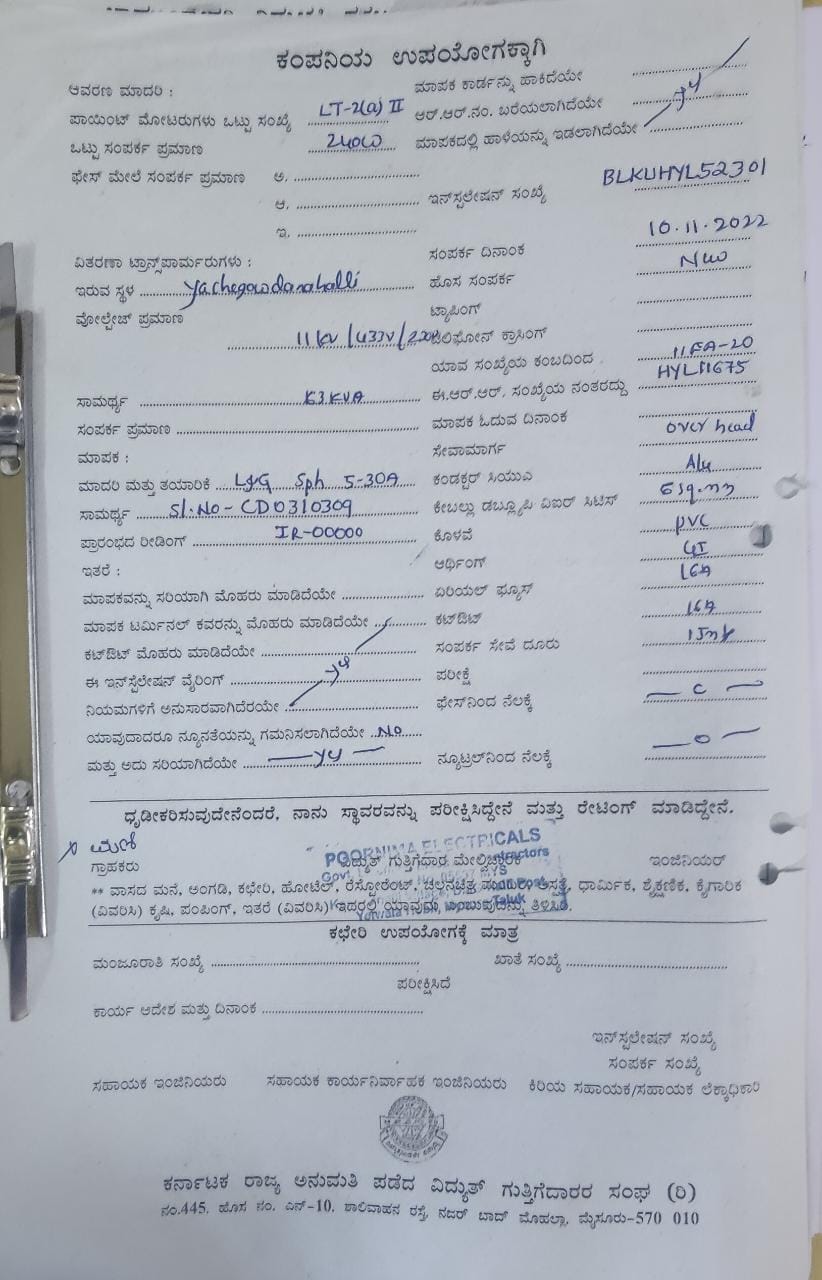 ಕಂಪನಿಯ ಉಪಯೋಗಕ್ಕಾಗಿ
ಆವರಣ ಮಾದರಿ : ಮಾಪಕ ಕಾರ್ಡನ್ನು ಹಾಕಿದೆಯೇ
ಪಾಯಿಂಟ್ ಮೋಟರುಗಳು ಒಟ್ಟು ಸಂಖ್ಯೆ LT-2(a) II ಆರ್.ಆರ್.ನಂ. ಬರೆಯಲಾಗಿದೆಯೇ
ಒಟ್ಟು ಸಂಪರ್ಕ ಪ್ರಮಾಣ 240W ಮಾಪಕದಲ್ಲಿ ಹಾಳೆಯನ್ನು ಇಡಲಾಗಿದೆಯೇ
ಫೇಸ್ ಮೇಲೆ ಸಂಪರ್ಕ ಪ್ರಮಾಣ ಅ.
ಆ. ಇನ್‌ಸ್ಟಲೇಷನ್ ಸಂಖ್ಯೆ BLKUHYL52301
ಇ.
ಸಂಪರ್ಕ ದಿನಾಂಕ 10.11.2022
ವಿತರಣಾ ಟ್ರಾನ್ಸ್‌ಪಾರ್ಮರುಗಳು :
ಇರುವ ಸ್ಥಳ yachegowdanahalli ಹೊಸ ಸಂಪರ್ಕ New
ವೋಲ್ಟೇಜ್ ಪ್ರಮಾಣ ಟ್ಯಾಪಿಂಗ್
11KV/433V/ ಟೆಲಿಫೋನ್ ಕ್ರಾಸಿಂಗ್
ಯಾವ ಸಂಖ್ಯೆಯ ಕಂಬದಿಂದ 11FA-20
ಸಾಮರ್ಥ್ಯ 63 KVA ಈ.ಆರ್.ಆರ್. ಸಂಖ್ಯೆಯ ನಂತರದ್ದು HYL11675
ಸಂಪರ್ಕ ಪ್ರಮಾಣ ಮಾಪಕ ಓದುವ ದಿನಾಂಕ
ಮಾಪಕ : ಸೇವಾಮಾರ್ಗ over head
ಮಾದರಿ ಮತ್ತು ತಯಾರಿಕೆ L&G Sph 5-30A ಕಂಡಕ್ಟರ್ ಸಿಯುಎ Alu
ಸಾಮರ್ಥ್ಯ Sl.No- CD0310309 ಕೇಬಲ್ಲು ಡಬ್ಲ್ಯೂಪಿ ವಿಐರ್ ಸಿಟಿಸ್ 6sq.mm
ಪ್ರಾರಂಭದ ರೀಡಿಂಗ್ IR-00000 ಕೊಳವೆ PVC
ಇತರೆ : ಆರ್ಥಿಂಗ್ GI
ಮಾಪಕವನ್ನು ಸರಿಯಾಗಿ ಮೊಹರು ಮಾಡಿದೆಯೇ ಏರಿಯಲ್ ಫ್ಯೂಸ್ 16A
ಮಾಪಕ ಟರ್ಮಿನಲ್ ಕವರನ್ನು ಮೊಹರು ಮಾಡಿದೆಯೇ ಕಟ್‌ಔಟ್ 16A
ಕಟ್‌ಔಟ್ ಮೊಹರು ಮಾಡಿದೆಯೇ ಸಂಪರ್ಕ ಸೇವೆ ದೂರು
ಈ ಇನ್‌ಸ್ಟೆಲೇಷನ್ ವೈರಿಂಗ್ ಪರೀಕ್ಷೆ
ನಿಯಮಗಳಿಗೆ ಅನುಸಾರವಾಗಿದೆರಯೇ ಫೇಸ್‌ನಿಂದ ನೆಲಕ್ಕೆ
ಯಾವುದಾದರೂ ನ್ಯೂನತೆಯನ್ನು ಗಮನಿಸಲಾಗಿದೆಯೇ No
ಮತ್ತು ಅದು ಸರಿಯಾಗಿದೆಯೇ ನ್ಯೂಟ್ರಲ್‌ನಿಂದ ನೆಲಕ್ಕೆ
ಧೃಡೀಕರಿಸುವುದೇನೆಂದರೆ, ನಾನು ಸ್ಥಾವರವನ್ನು ಪರೀಕ್ಷಿಸಿದ್ದೇನೆ ಮತ್ತು ರೇಟಿಂಗ್ ಮಾಡಿದ್ದೇನೆ.
POORNIMA ELECTRICALS
ಗ್ರಾಹಕರು ವಿದ್ಯುತ್ ಗುತ್ತಿಗೆದಾರ ಮೇಲ್ವಿಚಾರಕ ಇಂಜಿನಿಯರ್
** ವಾಸದ ಮನೆ, ಅಂಗಡಿ, ಕಛೇರಿ, ಹೋಟೆಲ್, ರೆಸ್ಟೋರೆಂಟ್, ಚಲನಚಿತ್ರ ಮಂದಿರ, ಆಸ್ಪತ್ರೆ, ಧಾರ್ಮಿಕ, ಶೈಕ್ಷಣಿಕ, ಕೈಗಾರಿಕ
(ವಿವರಿಸಿ) ಕೃಷಿ, ಪಂಪಿಂಗ್, ಇತರೆ (ವಿವರಿಸಿ) ಇದರಲ್ಲಿ ಯಾವುದು ಎಂಬುವುದನ್ನು ತಿಳಿಸಿರಿ.
ಕಛೇರಿ ಉಪಯೋಗಕ್ಕೆ ಮಾತ್ರ
ಮಂಜೂರಾತಿ ಸಂಖ್ಯೆ ಖಾತೆ ಸಂಖ್ಯೆ
ಪರೀಕ್ಷಿಸಿದೆ
ಕಾರ್ಯ ಆದೇಶ ಮತ್ತು ದಿನಾಂಕ
ಇನ್‌ಸ್ಟಲೇಷನ್ ಸಂಖ್ಯೆ
ಸಂಪರ್ಕ ಸಂಖ್ಯೆ
ಸಹಾಯಕ ಇಂಜಿನಿಯರು ಸಹಾಯಕ ಕಾರ್ಯನಿರ್ವಾಹಕ ಇಂಜಿನಿಯರು ಕಿರಿಯ ಸಹಾಯಕ/ಸಹಾಯಕ ಲೆಕ್ಕಾಧಿಕಾರಿ
ಕರ್ನಾಟಕ ರಾಜ್ಯ ಅನುಮತಿ ಪಡೆದ ವಿದ್ಯುತ್ ಗುತ್ತಿಗೆದಾರರ ಸಂಘ (ರಿ)
ನಂ.445, ಹೊಸ ನಂ. ಎನ್-10, ಶಾಲಿವಾಹನ ರಸ್ತೆ, ನಜರ್ ಬಾದ್ ಮೊಹಲ್ಲಾ, ಮೈಸೂರು-570 010